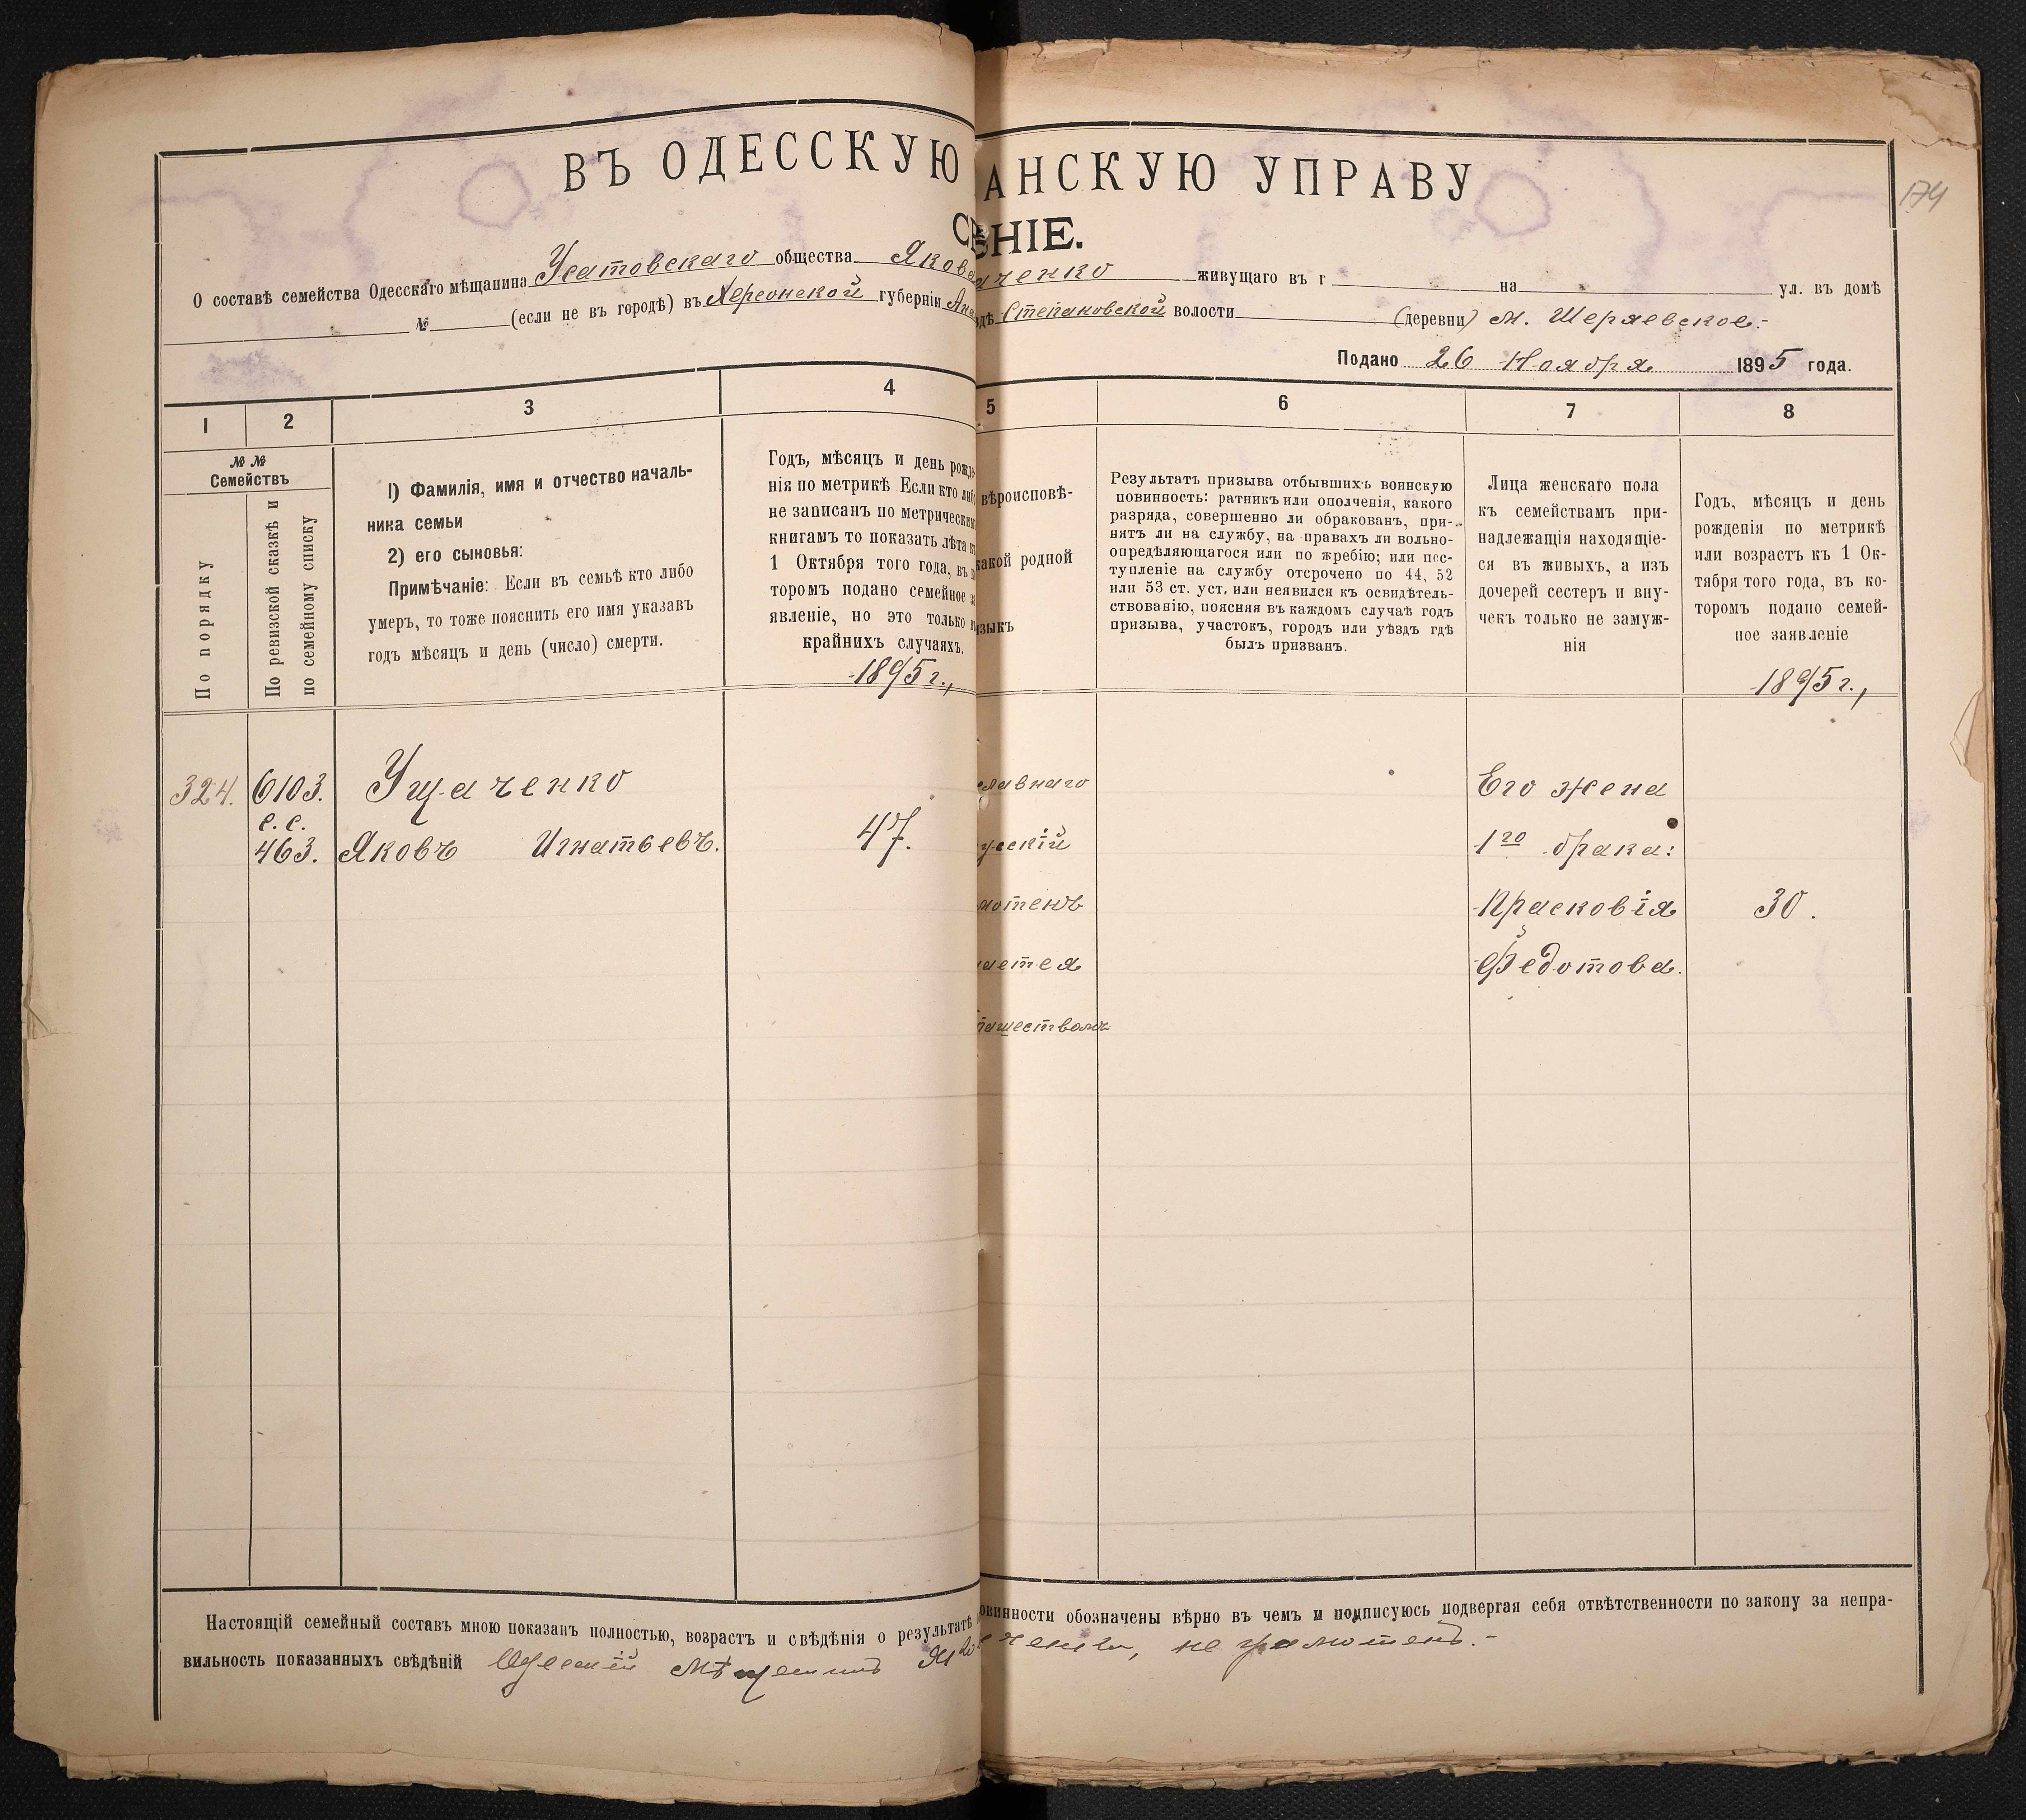 174
ВЪ ОДЕССКУЮ АНСКУЮ УПРАВУ
СВ ѢНІЕ.
О составѣ семейства Одесскаго мѣщанина Усатовскаго общества Якова аченко живущаго въ г на ул. въ домѣ
№ (если не въ городѣ) въ Херсонской губерніи Ана здѣ Степановской волости (деревни) м. Ширяевское:-
Подано 26 Ноября 1895 года.
1 2 3 4 5 6 7 8
№ №
Семействъ
По порядку
По ревизской сказкѣ и
по семейному списку
1) Фамилія, имя и отчество началь-
ника семьи
2) его сыновья:
Примѣчаніе: Если въ семьѣ кто либо
умеръ, то тоже пояснить его имя указавъ
годъ мѣсяцъ и день (число) смерти.
Годъ, мѣсяцъ и день рожде-
нія по метрикѣ Если кто либо
не записанъ по метрическимъ
книгамъ то показать лѣта къ
1 Октября того года, въ ко
торомъ подано семейное за
явленіе, но это только въ
крайнихъ случаяхъ.
1895 г.,
вѣроисповѣ-
какой родной
языкъ
Результатъ призыва отбывшихъ воинскую
повинность: ратникъ или ополченія, какого
разряда, совершенно ли обракованъ, при-
нятъ ли на службу, на правахъ ли вольно-
опредѣляющагося или по жребію; или пос-
тупленіе на службу отсрочено по 44, 52
или 53 ст. уст. или неявился къ освидѣтель-
ствованію, поясняя въ каждомъ случаѣ годъ
призыва, участокъ, городъ или уѣздъ гдѣ
былъ призванъ.
Лица женскаго пола
къ семействамъ при-
надлежащія находящіе-
ся въ живыхъ, а изъ
дочерей сестеръ и вну-
чекъ только не замуж-
нія
Годъ, мѣсяцъ и день
рожденія по метрикѣ
или возрастъ къ 1 Ок-
тября того года, въ ко-
торомъ подано семей-
ное заявленіе
1895 г.,
324. 6103. Ущаченко славнаго Его жена
с. с.
463. Яковъ Игнатьевъ. 47. усскій 1го брака:
мотенъ Прасковія 30.
ается Федотова.
пашествомъ
Настоящій семейный составъ мною показанъ полностью, возрастъ и свѣдѣнія о результатѣ овинности обозначены вѣрно въ чемъ и подписуюсь подвергая себя отвѣтственности по закону за непра-
вильность показанныхъ свѣдѣній Одесскій Мѣщанинъ Яко ченко, не грамотенъ.-